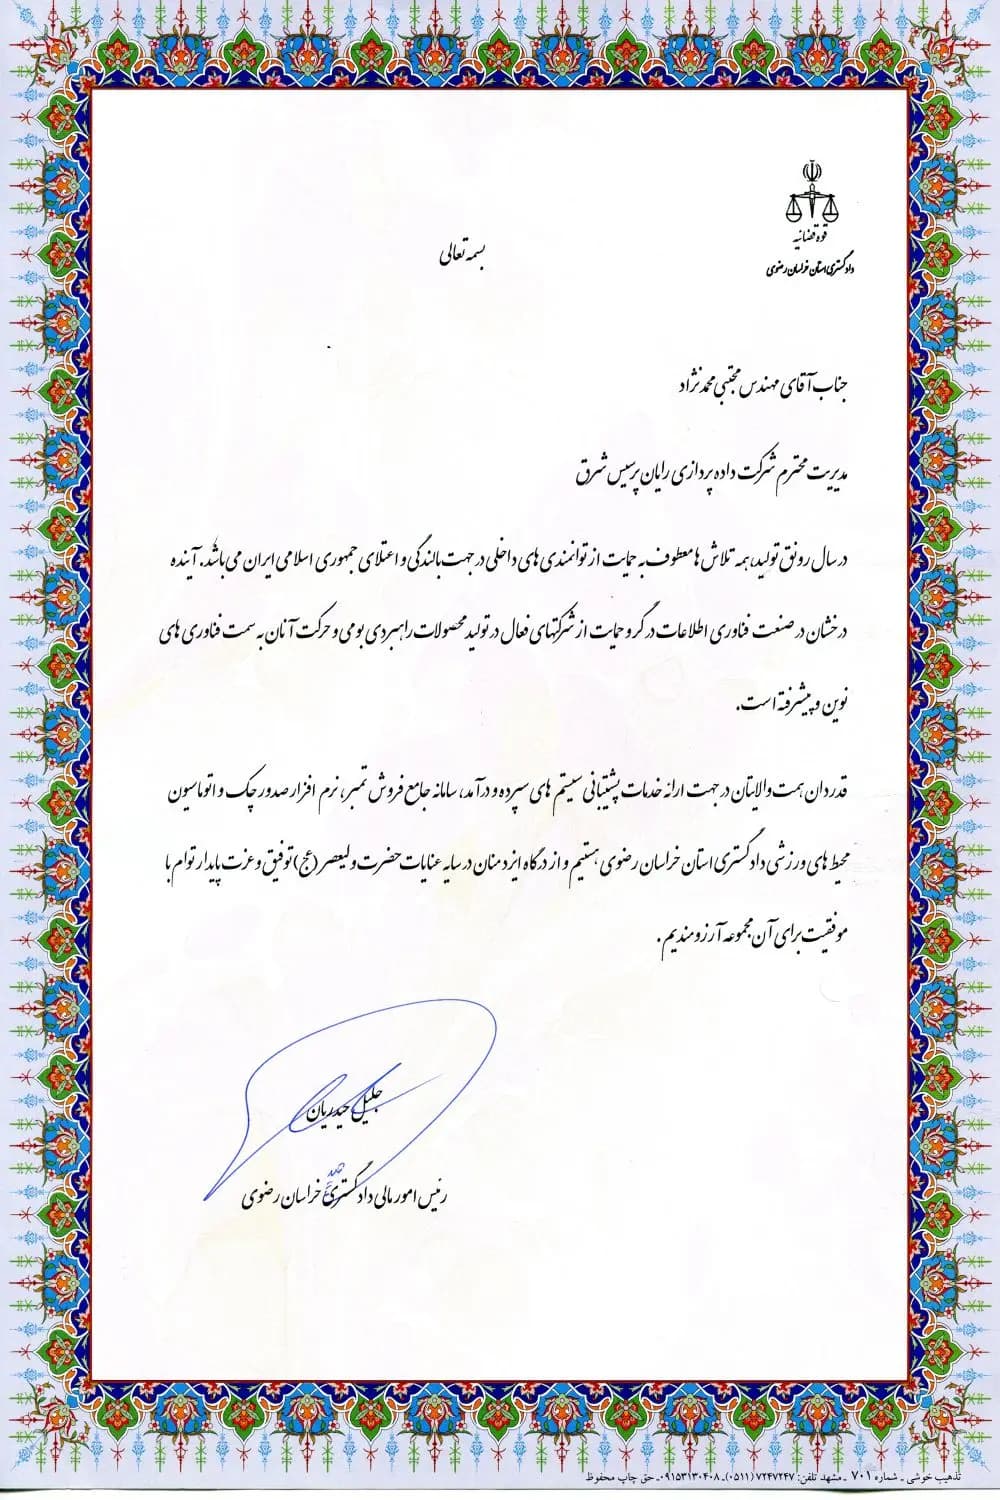 قوه قضائیه
دادگستری استان خراسان رضوی
بسمه تعالی
جناب آقای مهندس مجتبی محمدنژاد
مدیریت محترم شرکت داده پردازی رایان پرسیس شرق
در سال رونق تولید، همه تلاش ها معطوف به حمایت از توانمندی های داخلی در جهت بالندگی و اعتلای جمهوری اسلامی ایران می باشد. آینده
درخشان در صنعت فناوری اطلاعات در گرو حمایت از شرکتهای فعال در تولید محصولات راهبردی بومی و حرکت آنان به سمت فناوری های
نوین و پیشرفته است.
قدردان همت والایتان در جهت ارائه خدمات پشتیبانی سیستم های سپرده و درآمد، سامانه جامع فروش تمبر، نرم افزار صدور چک و اتوماسیون
محیط های ورزشی دادگستری استان خراسان رضوی هستیم و از درگاه ایزد منان در سایه عنایات حضرت ولیعصر (عج) توفیق و عزت پایدار توام با
موفقیت برای آن مجموعه آرزومندیم.
جلیل حیدریان
رئیس امور مالی دادگستری خراسان رضوی
تذهیب خوشی ـ شماره ۷۰۱ ـ مشهد تلفن: ۷۲۴۷۲۴۷ (۰۵۱۱) ـ ۰۹۱۵۳۱۳۰۴۰۸ـ حق چاپ محفوظ